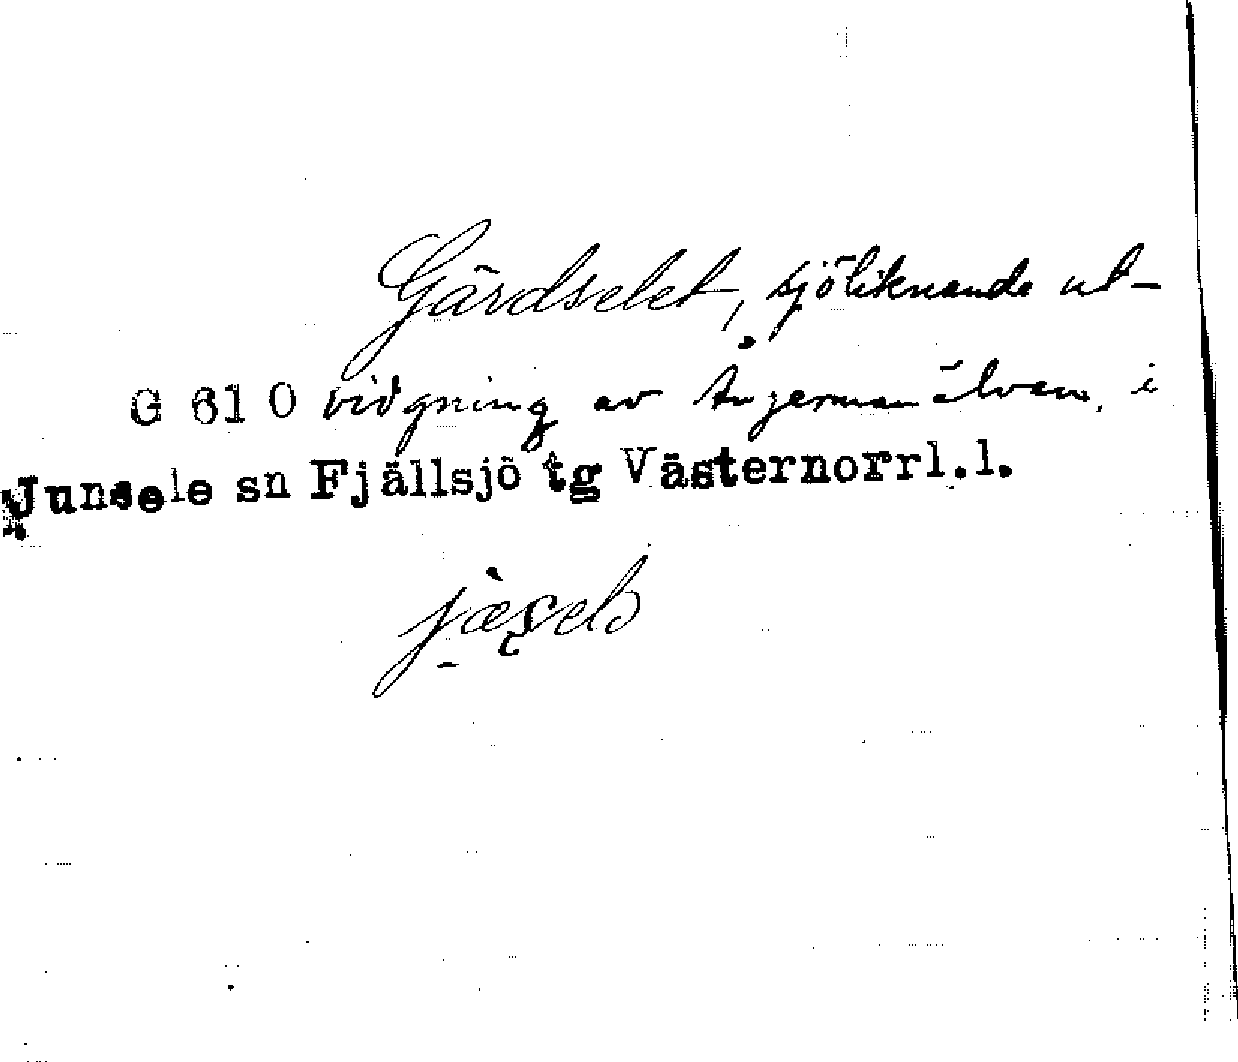 Gärdselet, sjöliknande ut-
G 610 vidgning av Ångermanälven, i
Junsele sn Fjällsjö tg Västernorrl.l.